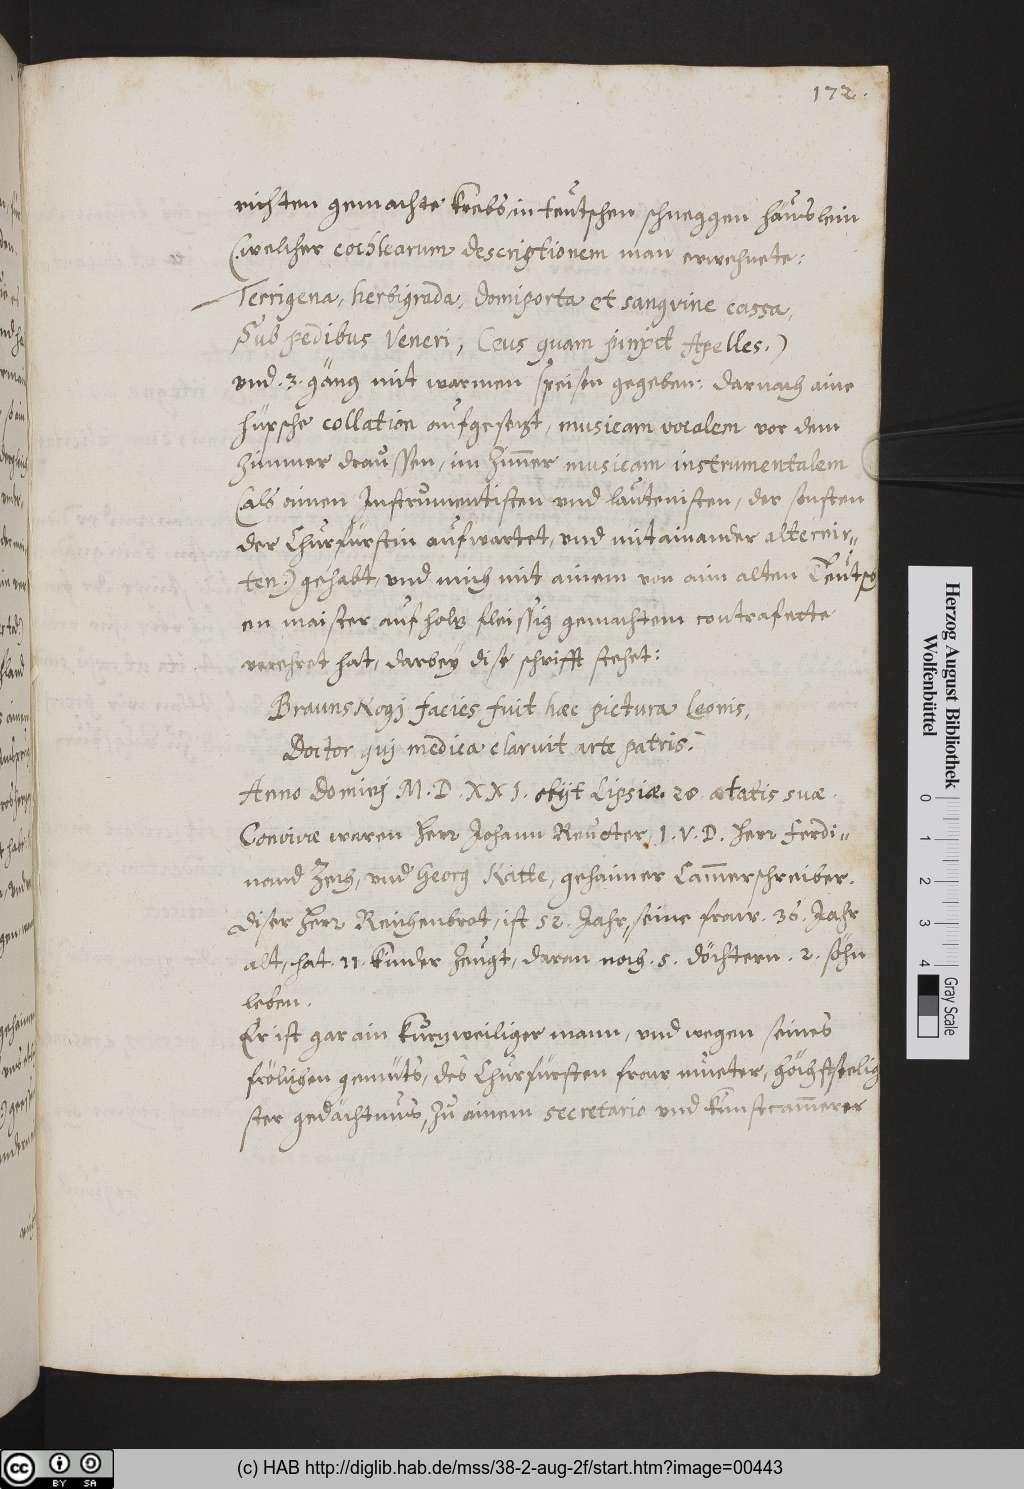 172.
richten gemachte Krebs, in teutschen schneggen häuslein
(welcher cochlearum descriptionem man erwehnete:
Terrigena, herbigrada, domiporta et sanguine cassa,
Sub pedibus Veneri, Ceus quam pinxit Apelles.)
vnd .3. gäng mit warmen speisen gegeben: darnach aine
hüpsche collation aufgesetzt, musicam vocalem vor dem
zimmer draussen, im zim̄er musicam instrumentalem
(als ainen Instrumentisten vnd lautenisten, der sonsten
der Churfürstin aufwartet, vnd mit ainander altercir=
ten.) gehabt, vnd mich mit ainem von aim alten Teutsch
en maister auf holtz fleissig gemachtem contrafette
verehret hat, darbey dise schrifft stehet:
Brauns Kogj facies fuit hæc pictura Leonis,
Doctor quj medica claruit arte patris.
Anno Dominj M.D.XXI. obijt Lipsiæ. 28. ætatis suæ.
Convivæ waren Herr Johann Reutter, I.V.D. Herr Ferdi=
nand Zech, vnd Georg Katte, gehaimer Cam̄erschreiber.
Diser Herr Reichenbrot, ist 52. Jahr, seine fraw. 36. Jahr
alt, hat. 11. kinder zeugt, daran noch .5. döchtern .2. söhn
leben.
Er ist gar ain kurtzweiliger mann, vnd wegen seines
frölichen gemüts, des Churfürsten fraw mueter, höchstselig
ster gedächtnus, zu ainem secretario vnd kunstcam̄erer
Herzog August Bibliothek
Wolfenbüttel
0 1 2 3 4
Gray Scale
BY SA
(c) HAB http://diglib.hab.de/mss/38-2-aug-2f/start.htm?image=00443